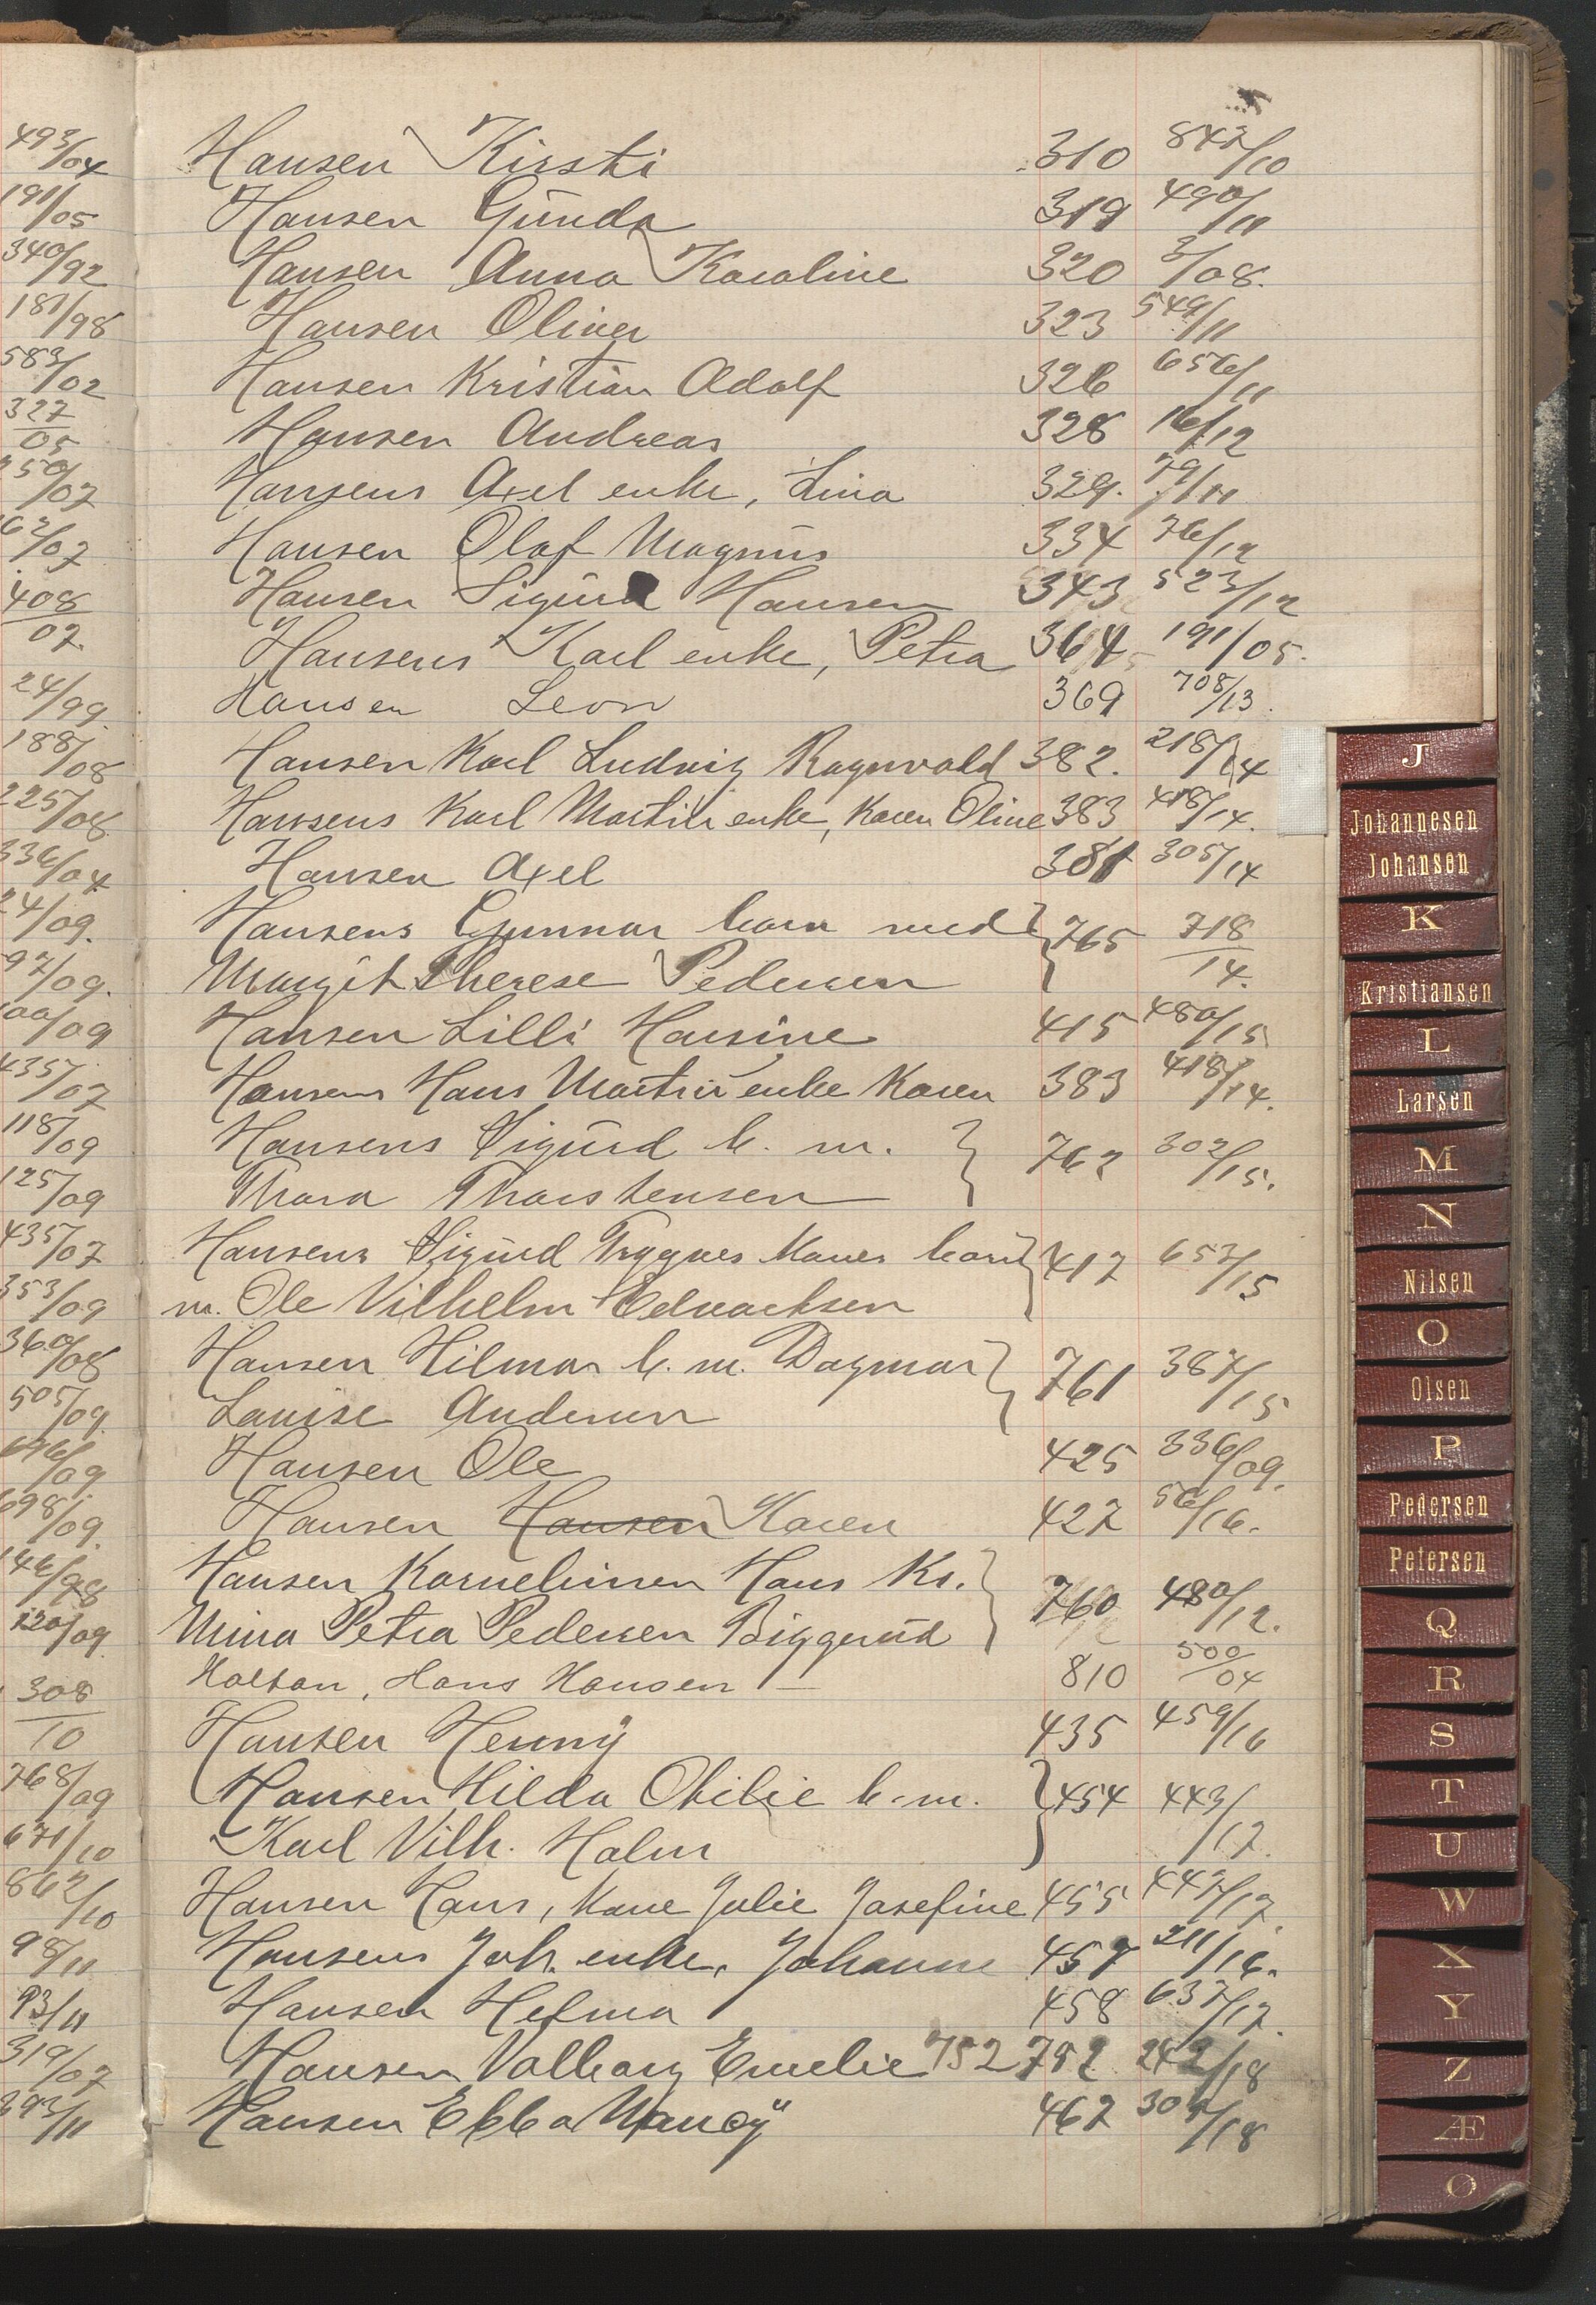 493/04
191/05
340/92
181/98
583/02
327/05
250/07
62/07
408/07.
24/99
188/08
225/08
336/04
24/09.
97/09.
00/09
435/07
118/09
125/09
435/07
353/09
360/08
505/09
646/09
698/09.
146/98
120/09
308/10
768/09
671/10
862/10
98/11
93/11
319/07
893/11
Hansen Kirsti 310 847/10
Hansen Gunda 319 490/11
Hansen Anna Karoline 320 3/08.
Hansen Oliver 323 549/11
Hansen Kristian Adolf 326 656/11
Hansen Andreas 328 16/12
Hansens Axel enke, Lina 329. 79/11
Hansen Olaf Magnus 334 76/12
Hansen Sigurd Hansen 343 523/12
Hansens Karl enke, Petra 364 191/05.
Hansen Leon 369 708/13.
Hansen Karl Ludvig Ragnvald 382. 218/14
Hansens Karl Martin enke, Karen Oline 383 418/14.
Hansen Axel 381 305/14
Hansens Gunnar barn med } 765 718/14.
Margit Therese Pedersen
Hansen Lilli Hansine 415 480/15
Hansens Hans Martin enke Karen 383 418/14.
Hansens Sigurd b. m. } 762 302/15.
Thora Thorstensen
Hansens Sigurd Trygves Kones barn } 417 657/15
m. Ole Vilhelm Edvardsen
Hansen Hilmar b. m. Dagmar } 761 387/15
Lovise Andersen
Hansen Ole 425 336/09.
Hansen Hansen Karen 427 56/16.
Hansen Korneliussen Hans Kr. } 760 480/12.
Mina Petra Pedersen Biggerud
Holtan, Hans Hansen — 810 500/04
Hansen Henny 435 459/16
Hansen Hilda Otilie b. m. } 454 443/17.
Karl Vilh. Holm
Hansen Hans, Kone Julie Josefine 455 447/17
Hansens Joh. enke, Johanne 457 211/16.
Hansen Helma 458 637/17.
Hansen Valborg Emelie 752 752 242/18
Hansen Ebba Nancy 462 307/18
J
Johannesen
Johansen
K
Kristiansen
L
Larsen
M
N
Nilsen
O
Olsen
P
Pedersen
Petersen
Q
R
S
T
U
W
X
Y
Z
Æ
Ø